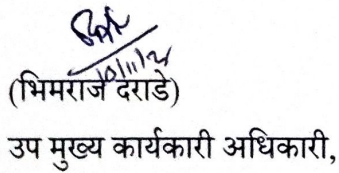 (भिमराज दराडे)
उप मुख्य कार्यकारी अधिकारी,